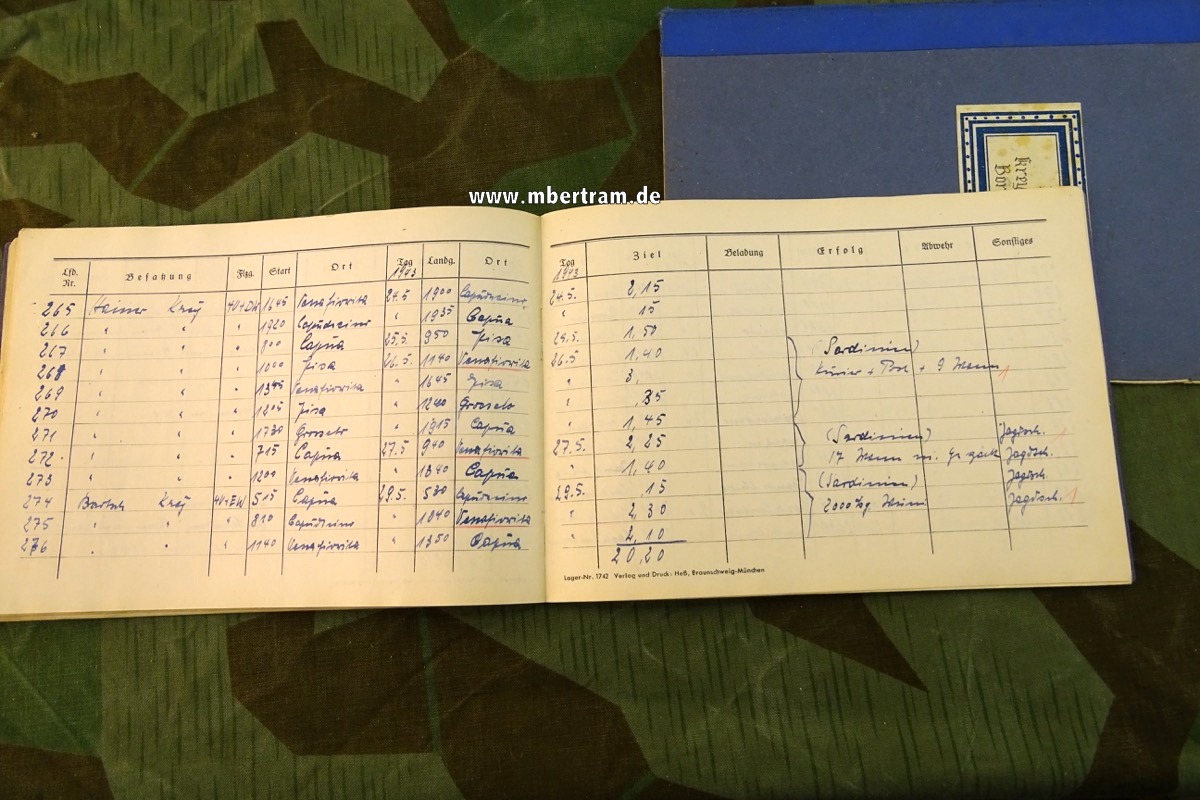 www.mbertram.de
Krey
Lfd. Nr. Besatzung Flzg. Start Ort Tag Landg. Ort
1943
265 Heiner Krey 4V+DK 1645 Venafiorita 24.5 1900 Capudicino
266 " " " 1920 Capudicino " 1935 Capua
267 " " " 800 Capua 25.5. 950 Pisa
268 " " " 1000 Pisa 26.5. 1140 Venafiorita
269 " " " 1345 Venafiorita " 1645 Pisa
270 " " " 1205 Pisa " 1240 Grosseto
271 " " " 1730 Grosseto " 1915 Capua
272 " " " 715 Capua 27.5 940 Venafiorita
273 " " " 1200 Venafiorita " 1340 Capua
274 Krey 515 Capua 29.5. 530 Capudicino
275 " " " 810 Capudicino " 1040 Venafiorita
276 " " " 1140 Venafiorita " 1350 Capua
Tag Ziel Beladung Erfolg Abwehr Sonstiges
1943
24.5. 2,15
" 15
25.5. 1,50
26.5 1,40 (Sardinien)
" 3, Kurier + + 9 Mann
" 35
" 1,45
27.5. 2,25 (Sardinien) Jagdsch.
" 1,40 17 Mann m. Jagdsch.
29.5. 15 (Sardinien) Jagdsch.
" 2,30 2000 kg Jagdsch.
" 2,10
20,20
Lager-Nr. 1742 Verlag und Druck: Heß, Braunschweig-München